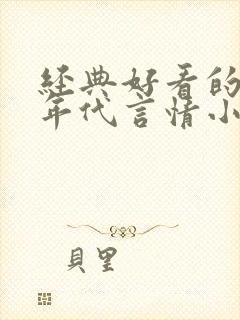 經典好看的
年代言情小
貝里